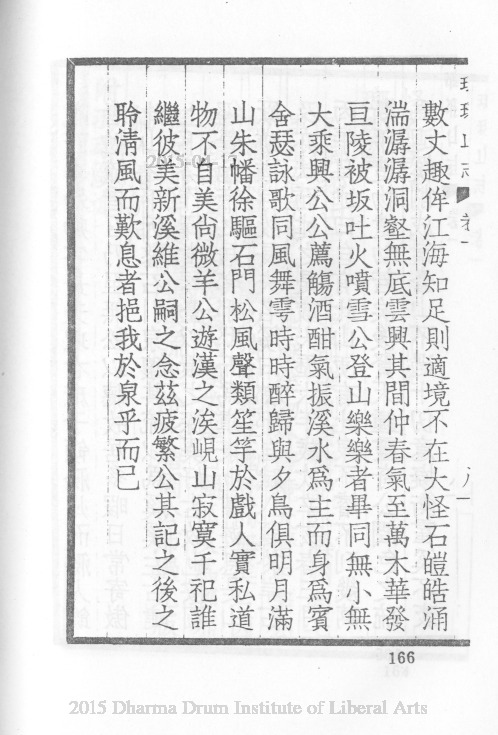 數丈趣侔江海知足則適境不在大怪石皚皓涌
湍潺潺洞壑無底雲興其間仲春氣至萬木華發
亘陵被坂吐火噴雪公登山樂樂者畢同無小無
大乘輿公公薦觴酒酣氣振溪水爲主而身爲賓
舍瑟詠歌同風舞雩時時醉歸與夕鳥俱明月滿
山朱幡徐驅石門松風聲類笙竽於戲人實私道
物不自美尙微羊公遊漢之涘峴山寂寞千祀誰
繼彼美新溪維公嗣之念茲疲繁公其記之後之
聆清風而歎息者挹我於泉乎而已
166
2015 Dharma Drum Institute of Liberal Arts